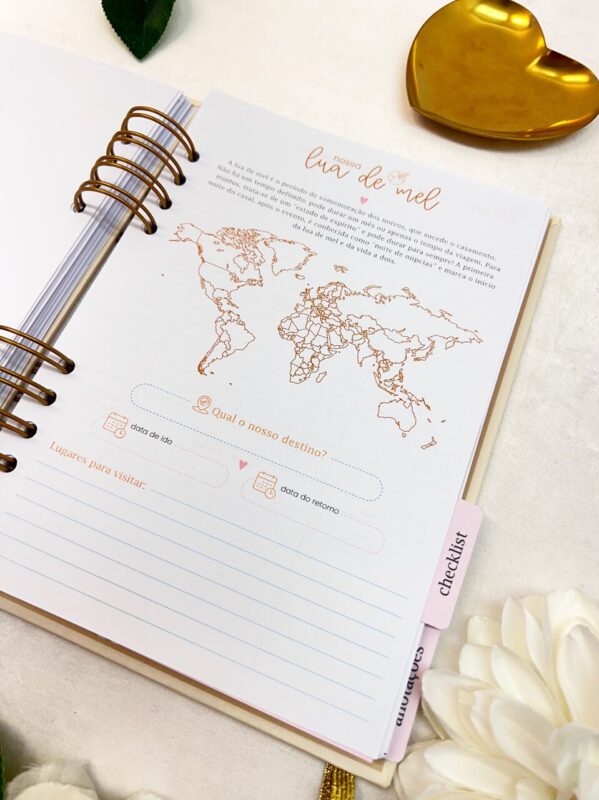 nossa
lua de mel
A lua de mel é o período de comemoração dos noivos, que sucede o casamento.
Não há um tempo definido: pode durar um mês ou apenas o tempo da viagem. Para
muitos, trata-se de um "estado de espírito" e pode durar para sempre! A primeira
noite do casal, após o evento, é conhecida como "noite de núpcias" e marca o início
da lua de mel e da vida a dois.
Qual o nosso destino?
data de ida
data do retorno
Lugares para visitar:
checklist
anotações